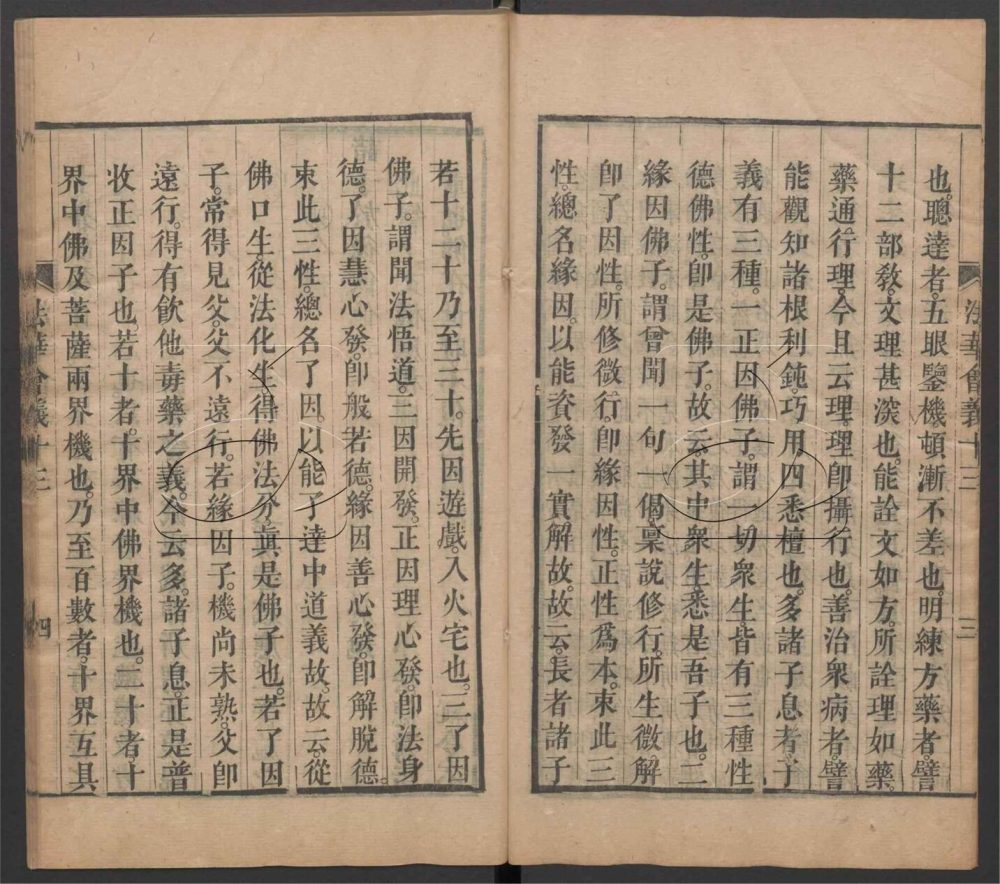 法華會義十三 三
也。聰達者。五眼鑒機。頓漸不差也。明練方藥者。譬
十二部敎。文理甚深也。能詮文如方。所詮理如藥。
藥通行理。今且云理。理卽攝行也。善治衆病者。譬
能觀知諸根利鈍。巧用四悉檀也。多諸子息者。子
義有三種。一正因佛子。謂一切衆生。皆有三種性
德佛性。卽是佛子。故云。其中衆生。悉是吾子也。二
緣因佛子。謂曾聞一句一偈。稟說修行。所生微解
卽了因性。所修微行卽緣因性。正性爲本。束此三
性。總名緣因。以能資發一實解故。故云。長者諸子
若十二十乃至三十。先因遊戲。入火宅也。三了因
佛子。謂聞法悟道。三因開發。正因理心發。卽法身
德。了因慧心發。卽般若德。緣因善心發。卽解脫德。
束此三性。總名了因。以能了達中道義故。故云。從
佛口生。從法化生。得佛法分。眞是佛子也。若了因
子。常得見父。父不遠行。若緣因子。機尚未熟。父卽
遠行。得有飲他毒藥之義。今云多諸子息。正是普
收正因子也。若十者。十界中佛界機也。二十者。十
界中佛及菩薩兩界機也。乃至百數者。十界互具
法華會義十三 四